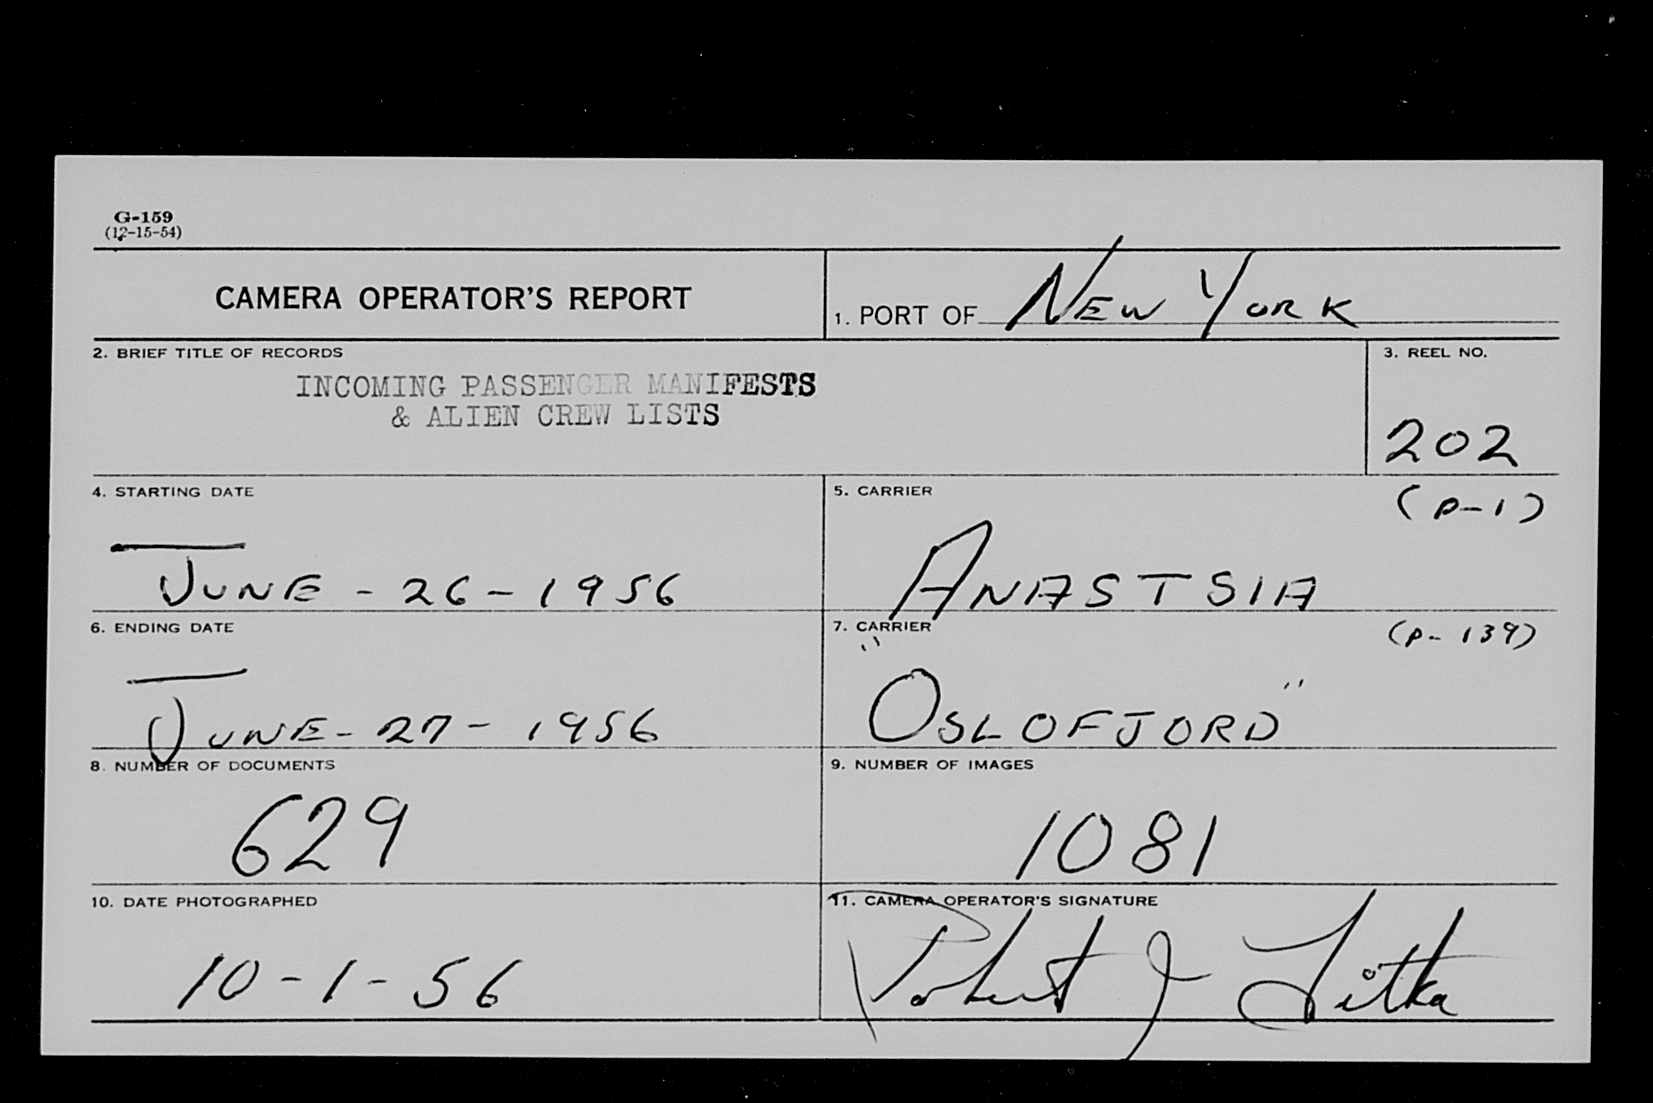 G-159
(12-15-54)
CAMERA OPERATOR'S REPORT
1. PORT OF NEW YORK
2. BRIEF TITLE OF RECORDS
INCOMING PASSENGER MANIFESTS
& ALIEN CREW LISTS
3. REEL NO.
202
4. STARTING DATE
JUNE - 26 - 1956
5. CARRIER
(P-1)
ANASTSIA
6. ENDING DATE
JUNE - 27 - 1956
7. CARRIER
(P- 139)
"OSLOFJORD"
8. NUMBER OF DOCUMENTS
629
9. NUMBER OF IMAGES
1081
10. DATE PHOTOGRAPHED
10-1-56
11. CAMERA OPERATOR'S SIGNATURE
Robert J Litka